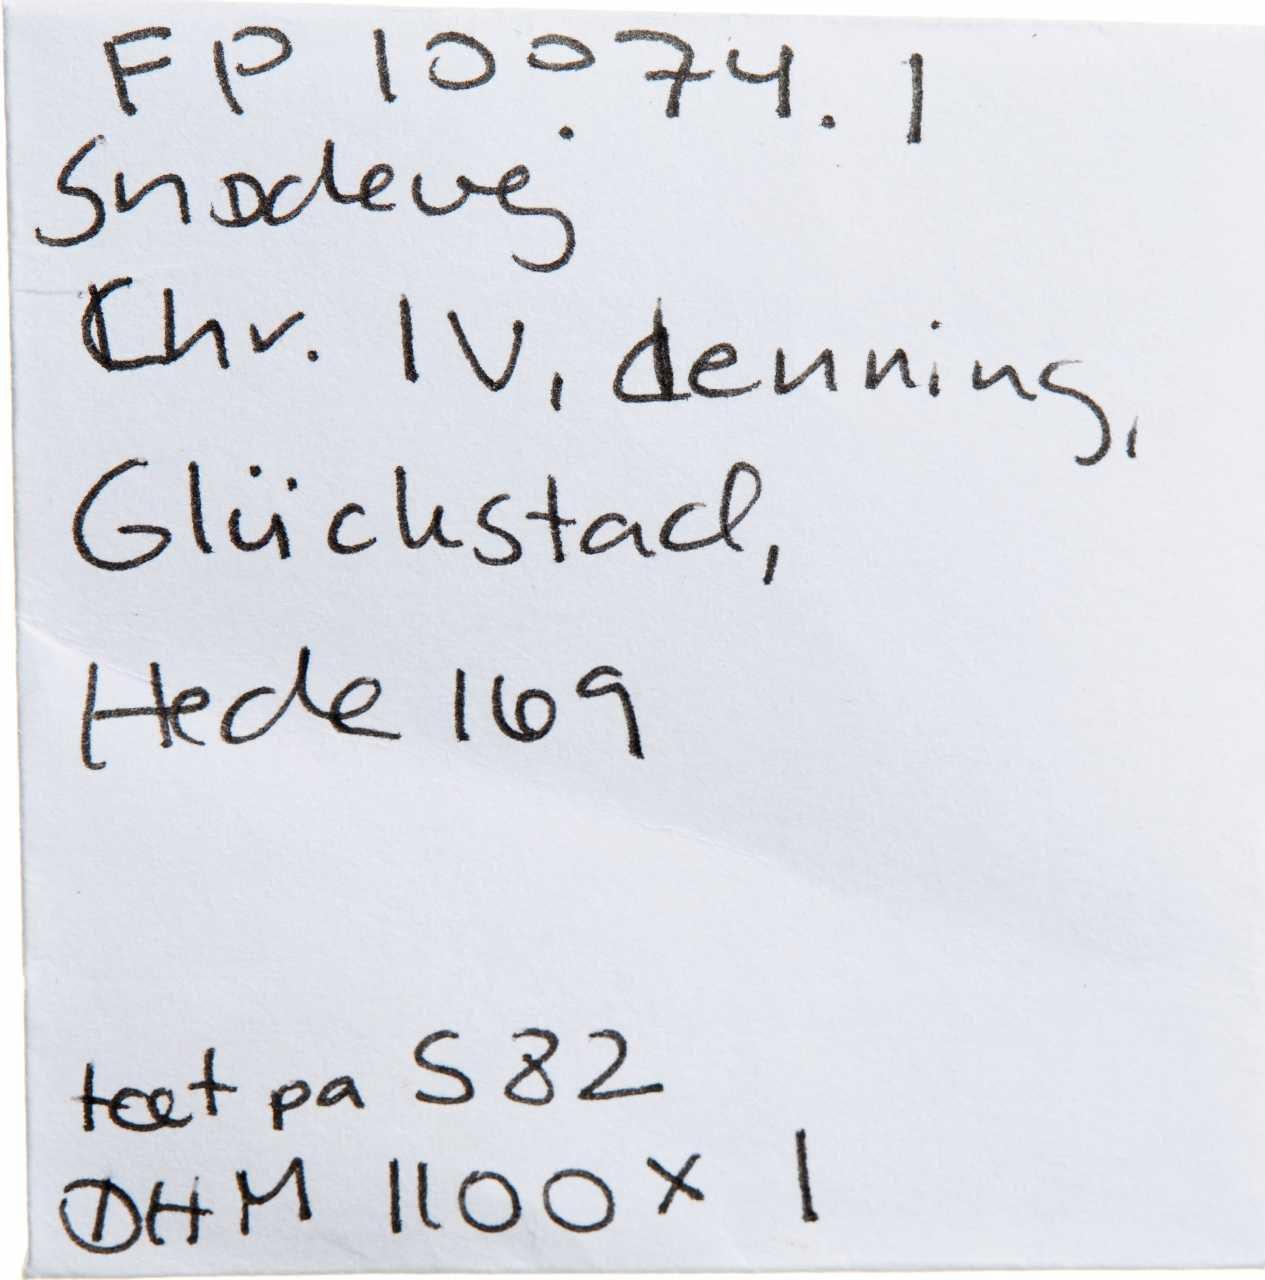 FP 10074.1
Snodevej
Chr. IV, denning,
Glückstad,
Hede 169
tæt pa S82
ØHM 1100 x 1